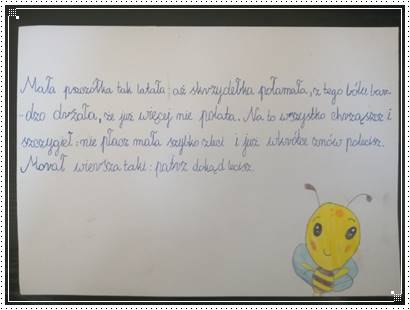 Mała pszczółka tak latała: aż skrzydełka połamała, z tego bólu bar-
-dzo drżała, że już więcej nie polata. Na to wszystko chrząszcz i
szczygieł: nie płacz mała szybko zleci i już wkrótce znów polecisz.
Morał wiersza taki: patrz dokąd lecisz.